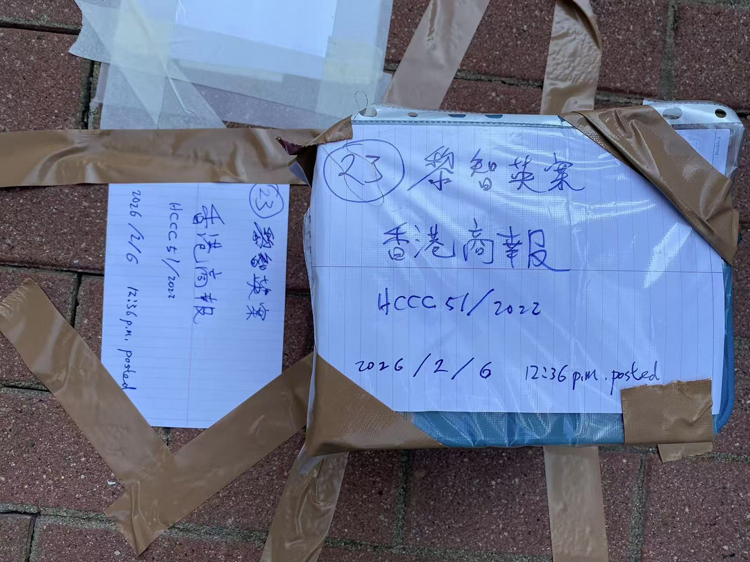 23 黎智英案
香港商報
HCCC 51/2022
2026/2/6 12:36 p.m. posted
23 黎智英案
香港商報
HCCC 51/2022
2026/2/6 12:36 p.m. posted